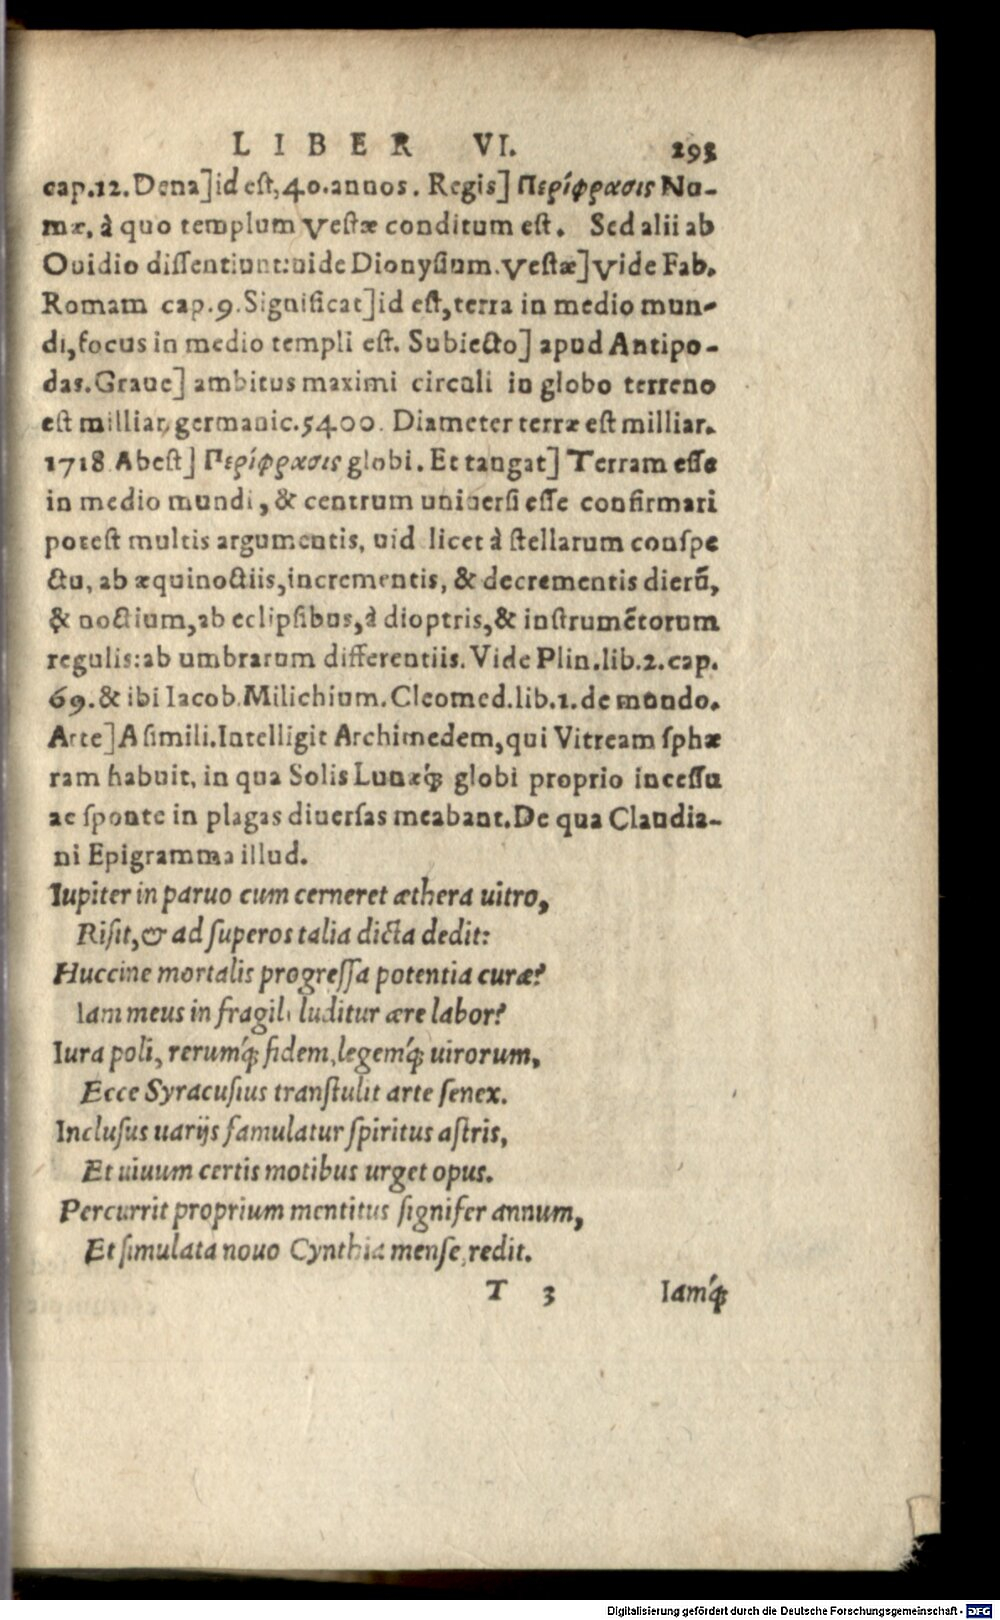 LIBER VI. 293
cap.12. Dena]id est,40.annos. Regis] Περίφρασις Nu-
mæ, à quo templum Vestæ conditum est. Sed alii ab
Ouidio dissentiunt:uide Dionysium.Vestæ]Vide Fab.
Romam cap.9.Significat]id est,terra in medio mun-
di,focus in medio templi est. Subiecto] apud Antipo-
das.Graue] ambitus maximi circuli in globo terreno
est milliar, germanic.5400. Diameter terræ est milliar.
1718 Abest] Περίφρασις globi. Et tangat] Terram esse
in medio mundi, & centrum uniuersi esse confirmari
potest multis argumentis, uid licet à stellarum conspe
ctu, ab æquinoctiis,incrementis, & decrementis dierũ,
& noctium,ab eclipsibus,à dioptris,& instrumẽtorum
regulis:ab umbrarum differentiis. Vide Plin.lib.2.cap.
69.& ibi Iacob.Milichium.Cleomed.lib.1.de mundo.
Arte]A simili.Intelligit Archimedem,qui Vitream sphæ
ram habuit, in qua Solis Lunæq́; globi proprio incessu
ac sponte in plagas diuersas meabant.De qua Claudia-
ni Epigramma illud.
Iupiter in paruo cum cerneret æthera uitro,
Risit,& ad superos talia dicta dedit:
Huccine mortalis progressa potentia curæ?
Iam meus in fragili luditur ære labor?
Iura poli, rerumq́; fidem,legemq́; uirorum,
Ecce Syracusius transtulit arte senex.
Inclusus uarijs famulatur spiritus astris,
Et uiuum certis motibus urget opus.
Percurrit proprium mentitus signifer annum,
Et simulata nouo Cynthia mense redit.
T 3 Iamq́;
Digitalisierung gefördert durch die Deutsche Forschungsgemeinschaft - DFG